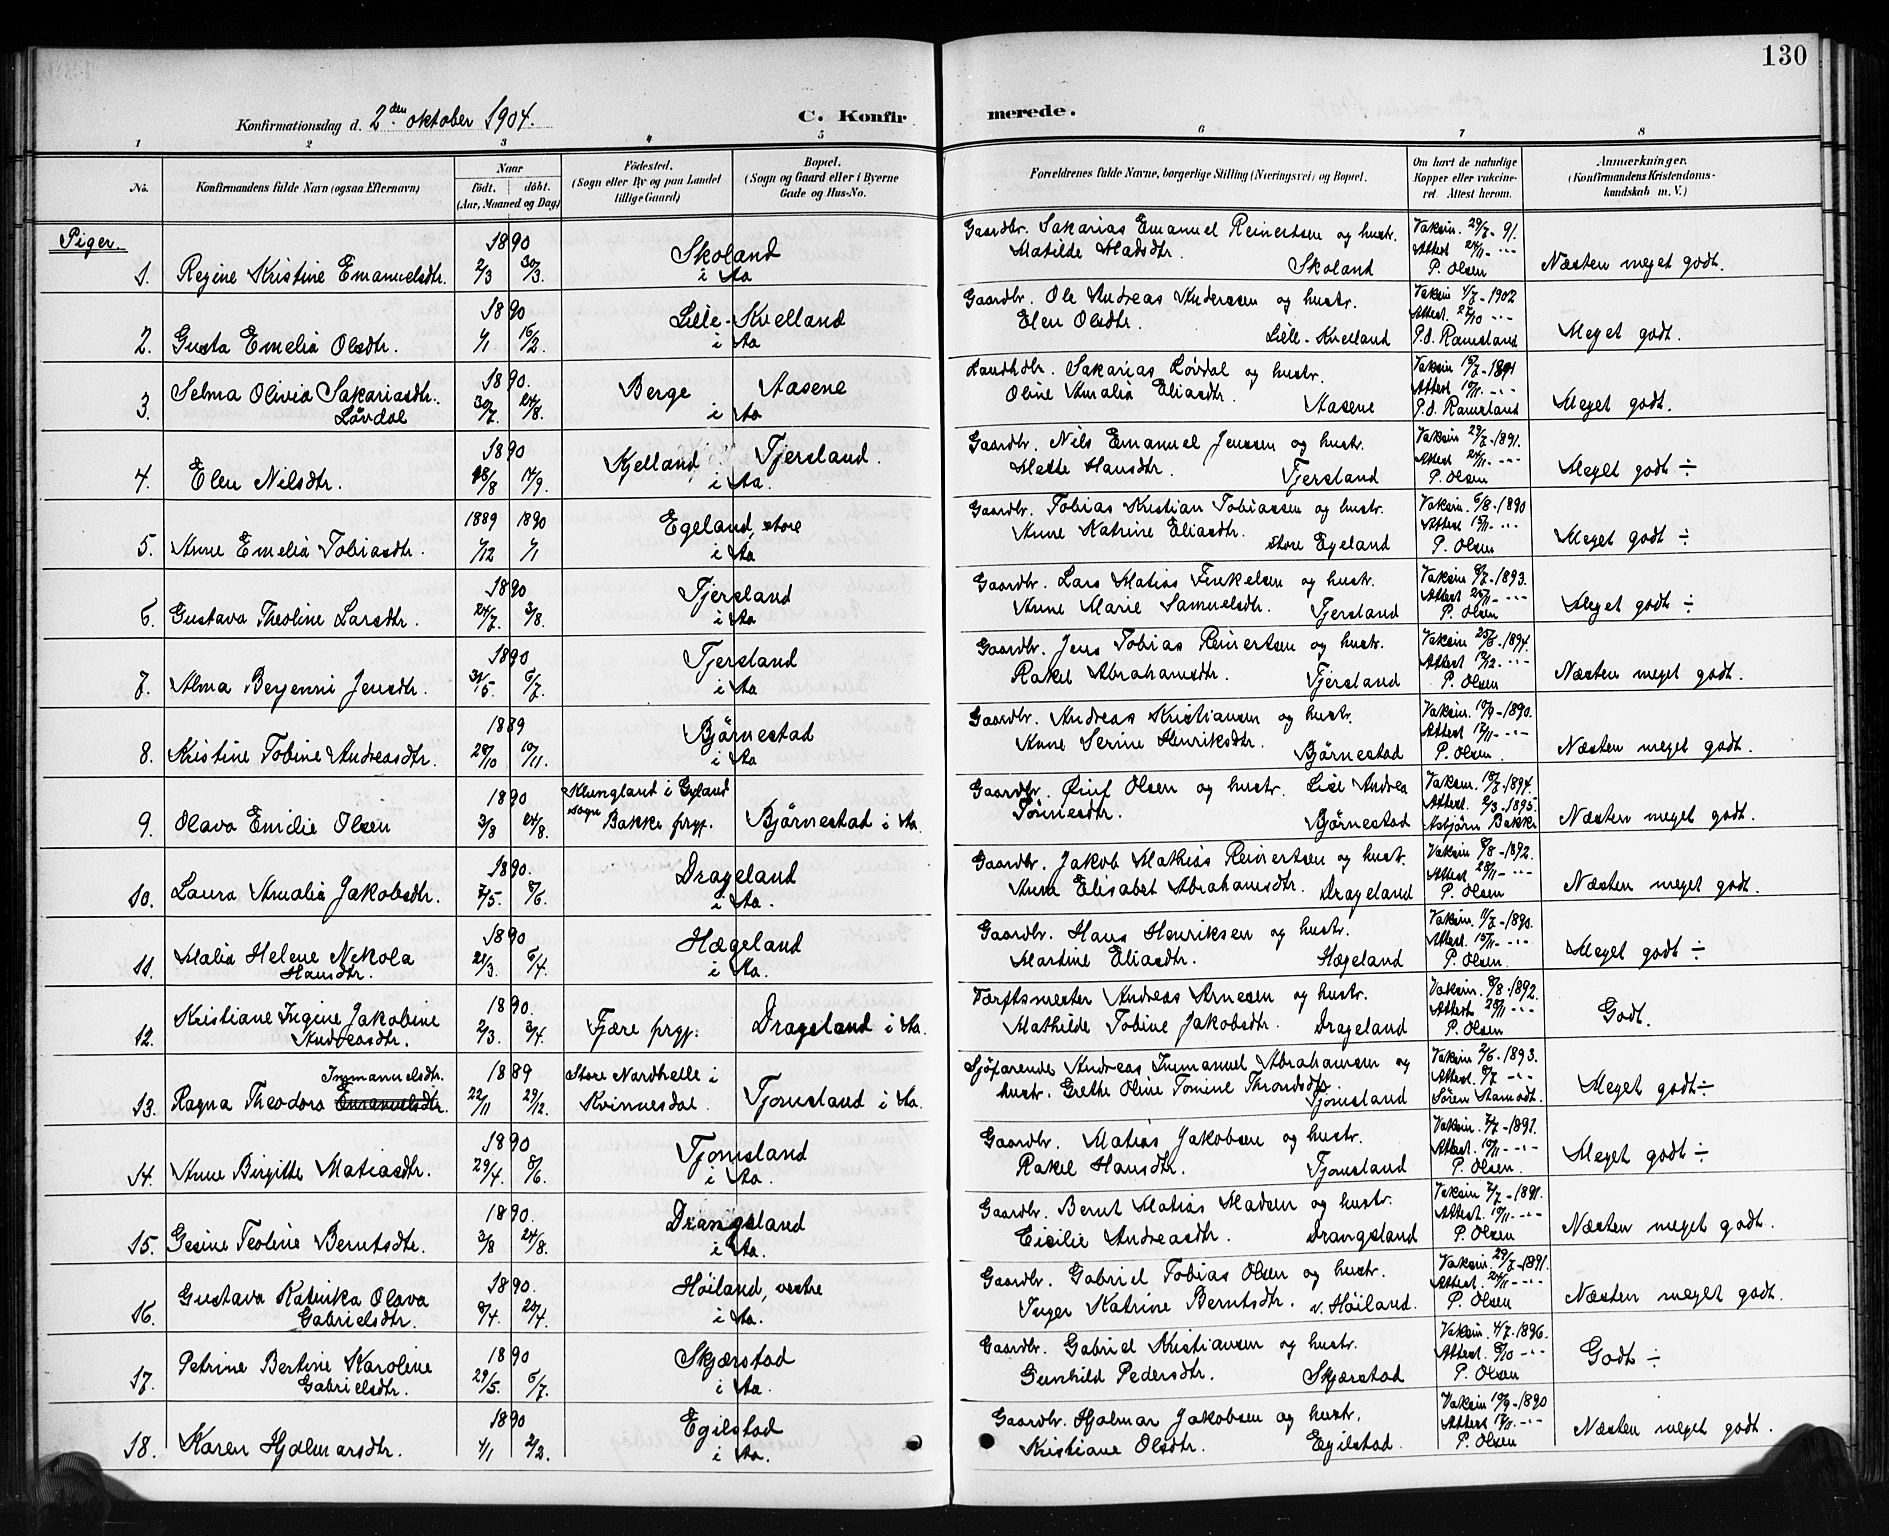 130
Konfirmationsdag d. 2den oktober 1904.
C. Konfirmerede.
1 2 3 4 5 6 7 8
No.
Konfirmandens fulde Navn (ogsaa Efternavn)
Naar
født. døbt.
(Aar, Maaned og Dag)
Fødested.
(Sogn eller By og paa Landet
tillige Gaard)
Bopæl.
(Sogn og Gaard eller i Byerne
Gade og Hus-No.
Forældrenes fulde Navne, borgerlige Stilling (Næringsvei) og Bopæl.
Om havt de naturlige
Kopper eller vakcine-
ret. Attest herom.
Anmærkninger.
(Konfirmandens Kristendoms-
kundskab m. V.)
Piger.
1. Regine Kristine Emanuelsdtr. 1890 2/3 30/3 Skoland i Aa
Gaardbr. Sakarias Emanuel Reinertsen og hustr.
Matilde Madsdtr. Skoland
Vaksin. 29/7-91.
Attest 24/11 -"-
P. Olsen
Næsten meget godt.
2. Gusta Emelia Olsdtr. 1890 1/1 16/2 Lille-Kvelland i Aa
Gaardbr. Ole Andreas Anderssen og hustr.
Elen Olsdtr. Lille-Kvelland
Vaksin 4/7-1902
Attest 27/10 -"-
P.O. Ramsland
Meget godt.
3. Selma Olivia Sakariasdtr.
Løvdal 1890. 30/7. 24/8. Berge i Aa Aasene
Sakarias Løvdal og hustr.
Oline Amalia Eliasdtr. Aasene
Vaksin 15/7-1891
Attest 10/11 -"-
P.O. Ramsland
Meget godt.
4. Elen Nilsdtr. 1890 18/8 14/9. Kjelland, Tjersland. i Aa.
Gaardbr. Nils Emanuel Jenssen og hustr.
Mette Hansdtr. Tjersland
Vaksin 29/7-1891.
Attest 24/11 -"-
P. Olsen
Meget godt ÷
5. Anne Emelia Tobiasdtr. 1889 1/12 1890 1/1 Egeland, store i Aa
Gaardbr. Tobias Kristian Tobiassen og hustr.
Anne Katrine Eliasdtr. store Egeland
Vaksin 6/8-1890
Attest 15/11 -"-
P. Olsen
Meget godt ÷
6. Gustava Theoline Larsdtr. 1890 24/7. 3/8. Tjersland i Aa
Gaardbr. Lars Matias Finkelsen og hustr.
Anne Marie Samuelsdtr. Tjersland
Vaksin 8/7-1893.
Attest 25/11 -"-
P. Olsen
Meget godt ÷
7. Alma Berjenni Jensdtr. 1890 31/5. 6/7. Tjersland i Aa
Gaardbr. Jens Tobias Reinertsen og hustr.
Rakel Abrahamsdtr. Tjersland
Vaksin 25/6-1894.
Attest 10/12 -"-
P. Olsen
Næsten meget godt.
8. Kristine Tobine Andreasdtr. 1889 20/10 10/11. Bjørnestad i Aa
Gaardbr. Andreas Kristiansen og hustr.
Anne Serine Henriksdtr. Bjørnestad
Vaksin. 10/9-1890.
Attest 17/11 -"-
P. Olsen
Næsten meget godt.
9. Olava Emilie Olsen 1890 3/8 24/8. Klungland i Gyland
sogn Bakke prgj. Bjørnestad i Aa.
Gaardbr. Olsen og hustr. Lise Andrea
Tønnesdtr. Bjørnestad
Vaksin. 18/7-1894.
Attest. 2/3-1895.
Asbjørn Bakke
Næsten meget godt.
10. Laura Amalia Jakobsdtr. 1890. 7/5. 8/6. Drageland i Aa.
Gaardbr. Jakob Mathias Reinertsen og hustr.
Anna Elisabet Abrahamsdtr. Drageland
Vaksin 8/8-1892.
Attest 28/11 -"-
P. Olsen
Næsten meget godt.
11. Malia Helene Nikola
Hansdtr. 1890 21/3. 6/4. Hægeland i Aa.
Gaardbr. Hans Henriksen og hustr.
Martine Eliasdtr. Hægeland
Vaksin. 11/7-1890.
Attest. 15/11 -"-
P. Olsen.
Meget godt ÷
12. Kristiane Ingine Jakobine
Andreasdtr. 1890. 2/3. 3/4. Fjære prgj. Drageland i Aa.
Tørftsmester Andreas Arnesen og hustr.
Mathilde Tobine Jakobsdtr. Drageland
Vaksin. 8/8-1892.
Attest 28/11 -"-
P. Olsen
Godt.
13. Ragna Theodora Emanuelsdtr. Immanuelsdtr. 1889 22/11 29/12. Store Nardhelle i
Kvinnesdal. Tjomsland i Aa
Sjøfarende Andreas Immanuel Abrahamsen og
hustr. Grethe Oline Tomine Throndsdtr. Tjomsland
Vaksin 2/6-1893.
Attest. 8/7 -"-
Søren Aamodt.
Meget godt ÷
14. Anne Birgitte Matiasdtr. 1890 29/4 8/6. Tjomsland i Aa
Gaardbr. Matias Jakobsen og hustr.
Rakel Hansdtr. Tjomsland
Vaksin. 7/7-1891.
Attest. 10/11 -"-
P. Olsen.
Meget godt ÷
15. Gesine Teoline Berntsdtr. 1890. 3/8 24/8. Drangsland i Aa.
Gaardbr. Bernt Matias Madsen og hustr.
Cicilie Andreasdtr. Drangsland
Vaksin 7/7-1891.
Attest. 10/11 -"-
P. Olsen
Næsten meget godt.
16. Gustava Katrika Olava
Gabrielsdtr. 1890. 8/4. 20/4. Høiland, vestre i Aa.
Gaardbr. Gabriel Tobias Olsen og hustr.
Inger Katrine Berntsdtr. v. Høiland.
Vaksin. 29/7-1891.
Attest. 24/11 -"-
P. Olsen
Næsten meget godt.
17. Petrine Bertine Karoline
Gabrielsdtr. 1890 29/5. 6/7. Skjærstad i Aa.
Gaardbr. Gabriel Kristiansen og hustr.
Gunhild Pedersdtr. Skjærstad
Vaksin. 4/7-1896.
Attest. 8/10 -"-
P. Olsen
Godt ÷
18. Karen Hjalmarsdtr. 1890 4/1 2/2. Egilstad i Aa.
Gaardbr. Hjalmar Jakobsen og hustr.
Kristiane Olsdtr. Egilstad.
Vaksin 10/9-1890
Attest 17/11 -"-
P. Olsen
Næsten meget godt.